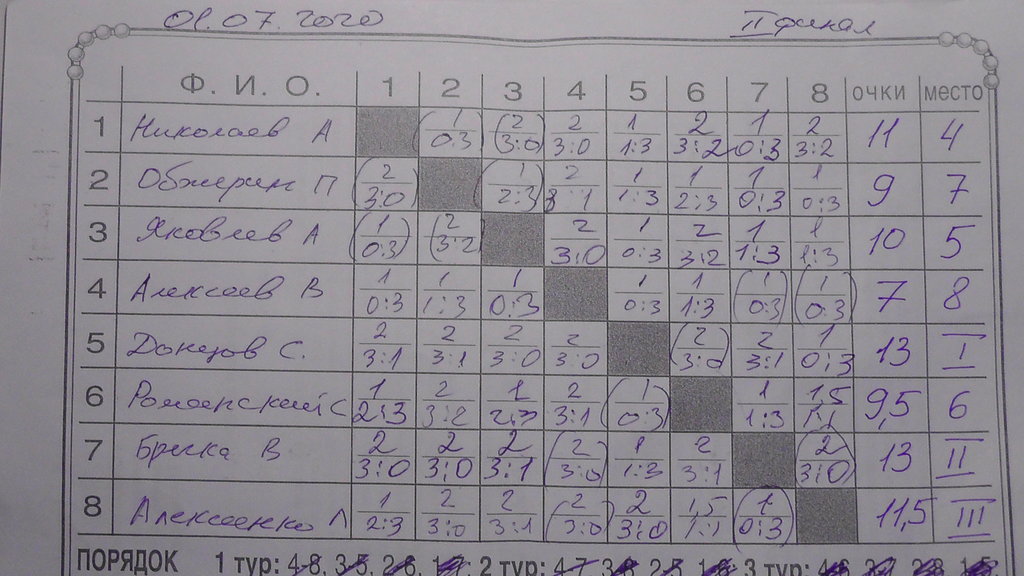 01.07.2020 II финал
Ф. И. О. 1 2 3 4 5 6 7 8 ОЧКИ МЕСТО
1 Николаев А (1 0:3) (2 3:0) 2 3:0 1 1:3 2 3:2 1 0:3 2 3:2 11 4
2 Обжерин П (2 3:0) (1 2:3) 2 3:1 1 1:3 1 2:3 1 0:3 1 0:3 9 7
3 Яковлев А (1 0:3) (2 3:2) 2 3:0 1 0:3 2 3:2 1 1:3 1 1:3 10 5
4 Алексеев В 1 0:3 1 1:3 1 0:3 1 0:3 1 1:3 (1 0:3) (1 0:3) 7 8
5 Донцов С. 2 3:1 2 3:1 2 3:0 2 3:0 (2 3:0) 2 3:1 1 0:3 13 I
6 Романский С 1 2:3 2 3:2 1 2:3 2 3:1 (1 0:3) 1 1:3 1,5 1:1 9,5 6
7 В 2 3:0 2 3:0 2 3:1 (2 3:0) 1 1:3 2 3:1 (2 3:0) 13 II
8 Алексеенко Л 1 2:3 2 3:0 2 3:1 (2 3:0) 2 3:0 1,5 1:1 (1 0:3) 11,5 III
ПОРЯДОК 1 тур: 4-8, 3-5, 2-6, 1-7, 2 тур: 4-7, 3-8, 2-5, 1-6, 3 тур: